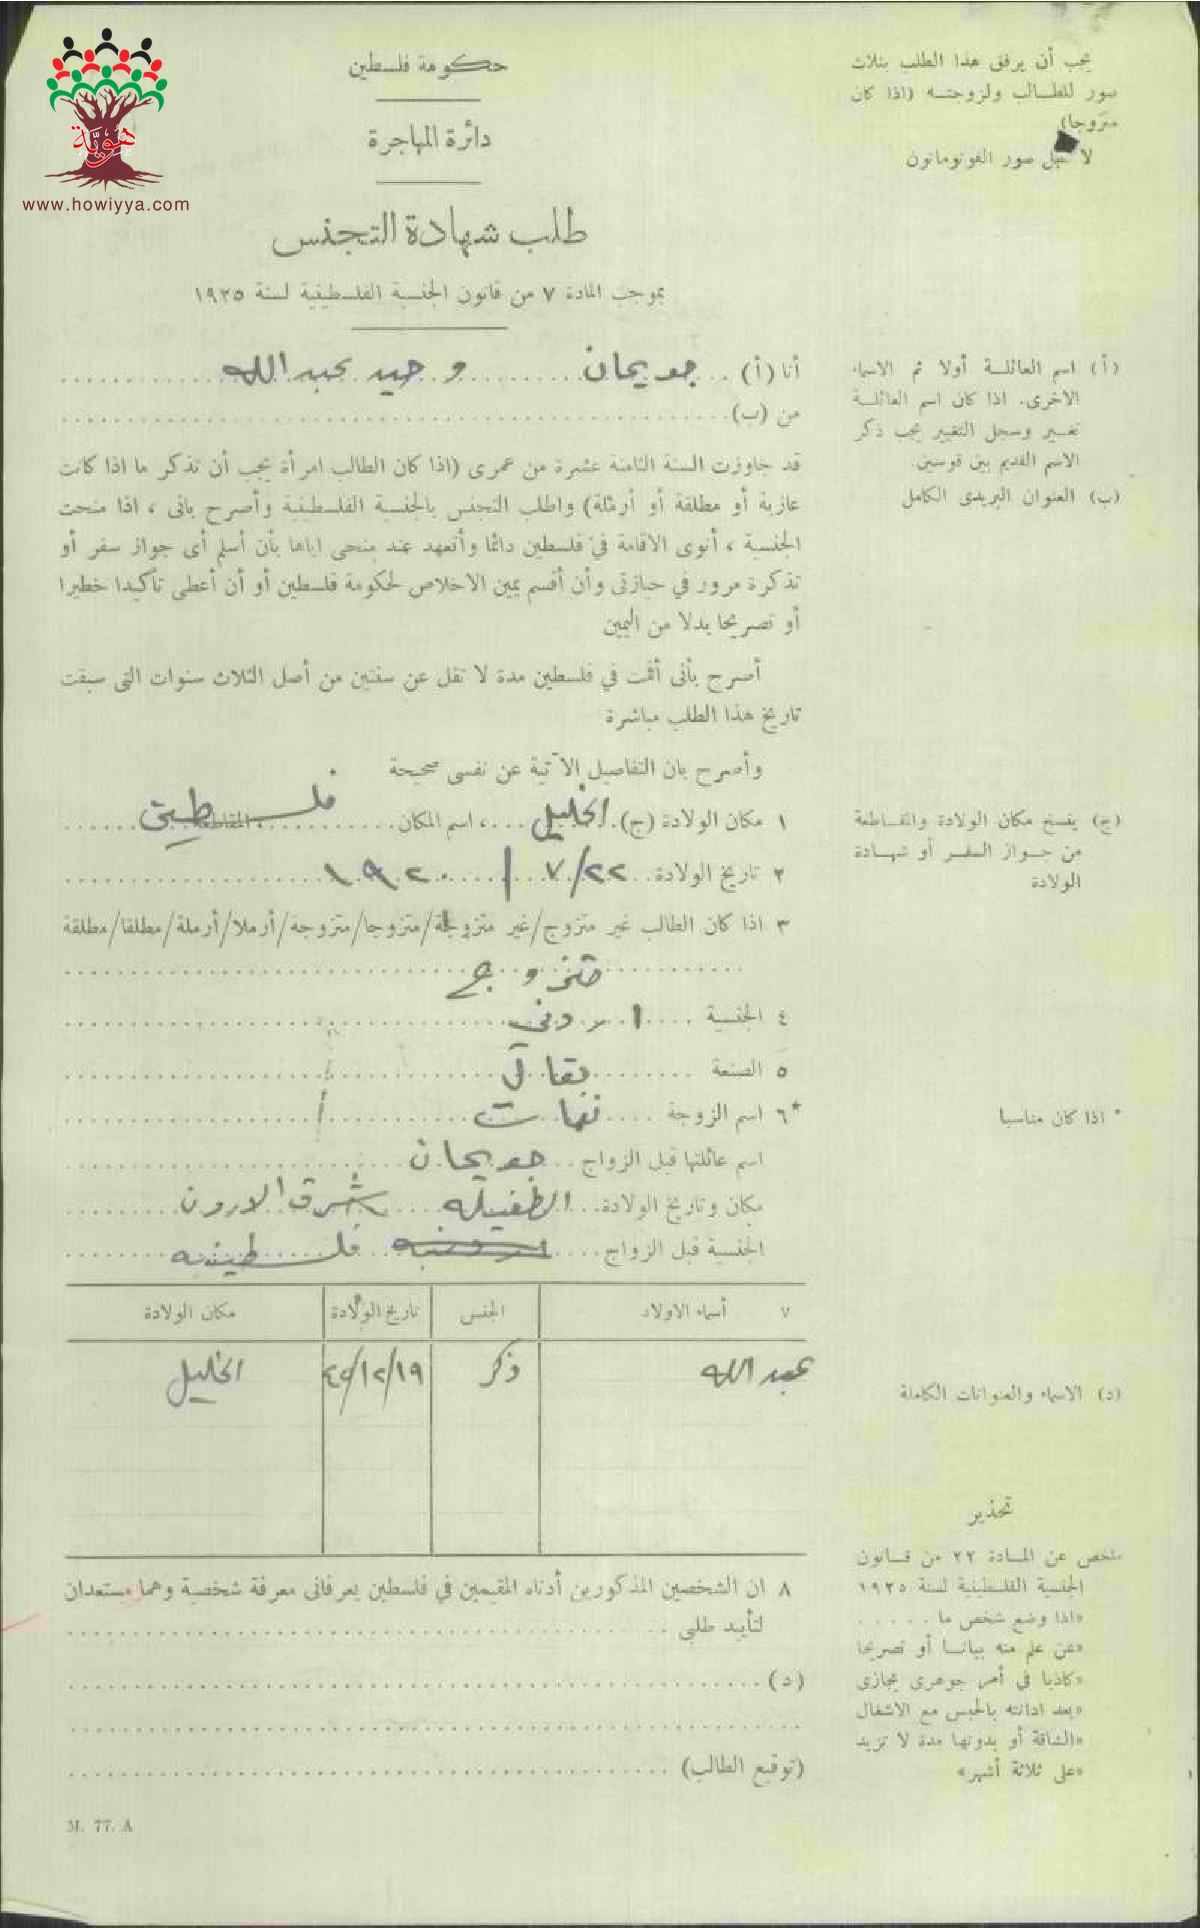 هويّة
www.howiyya.com
حكومة فلسطين
دائرة المهاجرة
طلب شهادة التجنس
بموجب المادة ٧ من قانون الجنسية الفلسطينية لسنة ١٩٢٥
يجب أن يرفق هذا الطلب بثلاث
صور للطالب ولزوجته (اذا كان
متزوجا)
لا تقبل صور الفوتوماتون
أنا (أ) جويحان وحيد عبد الله
من (ب)
(أ) اسم العائلة أولا ثم الاسماء
الاخرى. اذا كان اسم العائلة
تغير وسجل التغيير يجب ذكر
الاسم القديم بين قوسين.
(ب) العنوان البريدى الكامل
قد جاوزت السنة الثامنة عشرة من عمرى (اذا كان الطالب امرأة يجب أن تذكر ما اذا كانت
عازبة أو مطلقة أو أرملة) واطلب التجنس بالجنسية الفلسطينية وأصرح بانى ، اذا منحت
الجنسية ، أنوى الاقامة في فلسطين دائما وأتعهد عند منحى اياها بأن أسلم أى جواز سفر أو
تذكرة مرور في حيازتى وأن أقسم يمين الاخلاص لحكومة فلسطين أو أن أعطى تأكيدا خطيرا
أو تصريحا بدلا من اليمين
أصرح بأنى أقمت في فلسطين مدة لا تقل عن سنتين من أصل الثلاث سنوات التى سبقت
تاريخ هذا الطلب مباشرة
وأصرح بان التفاصيل الآتية عن نفسى صحيحة
١ مكان الولادة (ج) الخليل ، اسم المكان ، المقاطعة فلسطين
(ج) يفسخ مكان الولادة والمقاطعة
من جواز السفر أو شهادة
الولادة
٢ تاريخ الولادة ٢٢/٧/١٩٢٠
٣ اذا كان الطالب غير متزوج/غير متزوجة/متزوجا/متزوجة/أرملا/أرملة/مطلقا/مطلقة
متزوج
٤ الجنسية اردني
٥ الصنعة بقال
*٦ اسم الزوجة
* اذا كان مناسبا
اسم عائلتها قبل الزواج جويحان
مكان وتاريخ الولادة الطفيله شرق الاردن
الجنسية قبل الزواج فلسطينيه
٧ أسماء الاولاد الجنس تاريخ الولادة مكان الولادة
عبد الله ذكر ١٩/١٢/٤٢ الخليل
(د) الاسماء والعنوانات الكاملة
٨ ان الشخصين المذكورين أدناه المقيمين في فلسطين يعرفانى معرفة شخصية وهما مستعدان
لتأييد طلبى
(د)
(توقيع الطالب)
تحذير
ملخص عن المادة ٢٢ من قانون
الجنسية الفلسطينية لسنة ١٩٢٥
«اذا وضع شخص ما . . . . .
«عن علم منه بيانا أو تصريحا
«كاذبا في أمر جوهرى يجازى
«بعد ادانته بالحبس مع الاشغال
«الشاقة أو بدونها مدة لا تزيد
«على ثلاثة أشهر»
M. 77. A